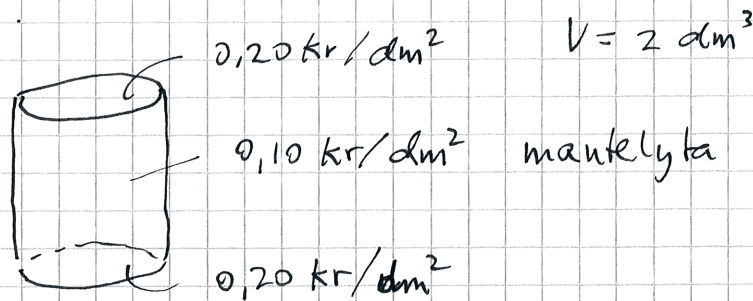 0,20 kr/dm² V = 2 dm³
0,10 kr/dm² mantelyta
0,20 kr/dm²